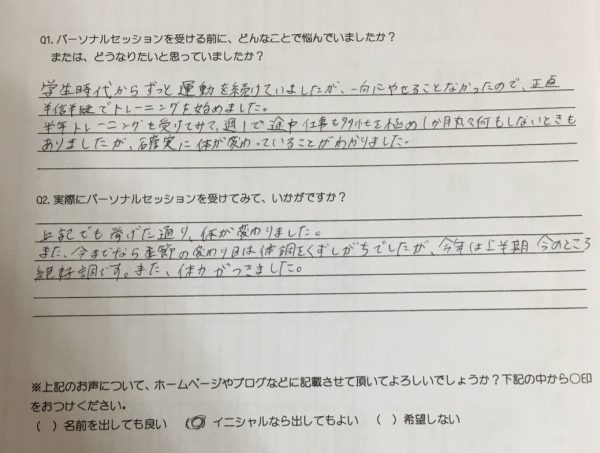 Q1. パーソナルセッションを受ける前に、どんなことで悩んでいましたか?
または、どうなりたいと思っていましたか?
学生時代からずっと運動を続けていましたが、一向にやせることなかったので、正点
半信半疑でトレーニングを始めました。
半年トレーニングを受けてみて、週1で途中仕事も多忙を極め1か月丸々何もしないときも
ありましたが、確実に体が変わっていることがわかりました。
Q2. 実際にパーソナルセッションを受けてみて、いかがですか?
上記でも挙げた通り、体が変わりました。
また、今までなら季節の変わり目は体調をくずしがちでしたが、今年は上半期 今のところ
絶好調です。また、体力がつきました。
※上記のお声について、ホームページやブログなどに記載させて頂いてよろしいでしょうか?下記の中から○印
をおつけください。
( ) 名前を出しても良い (○) イニシャルなら出してもよい ( ) 希望しない